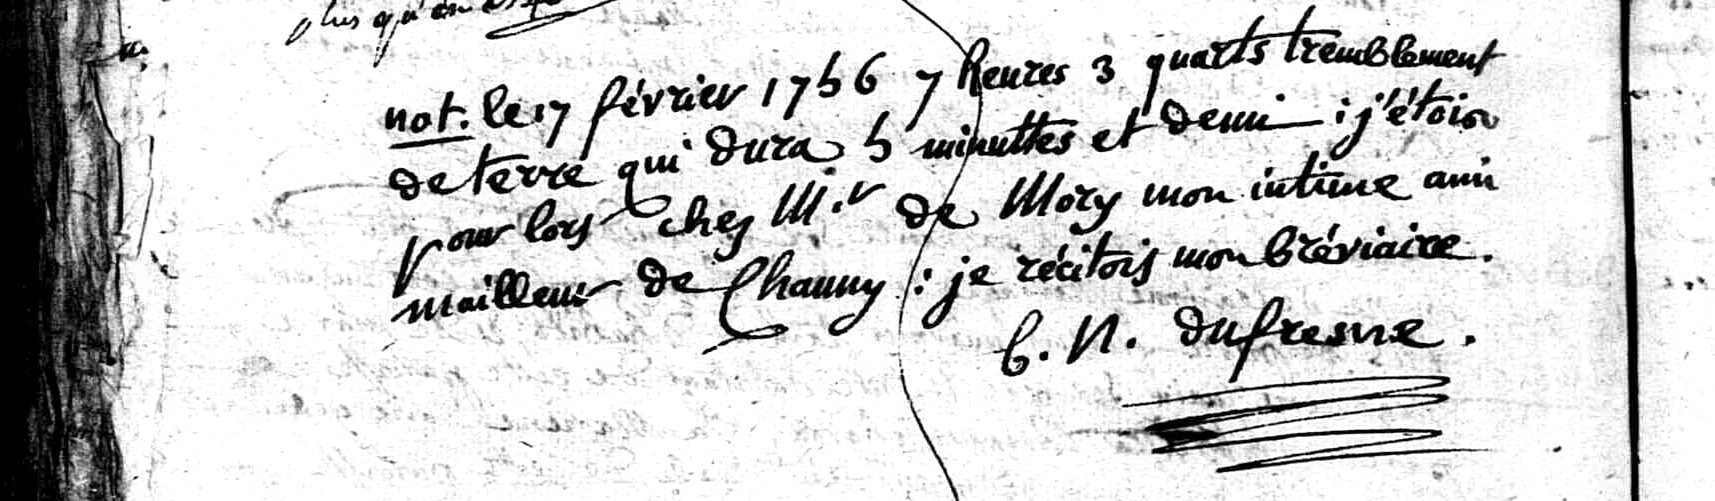 plus qu'en
not. le 17 février 1756 7 heures 3 quarts tremblement
de terre qui dura 5 minuttes et demi : j'étois
pour lors chez M.r de Mory mon intime ami
mailleur de Chauny : je récitois mon bréviaire.
C. N. dufresne.